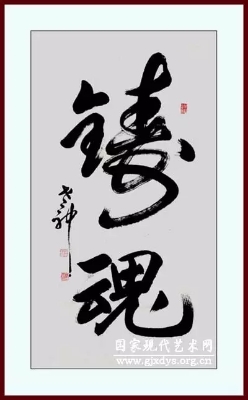 铸魂
国家现代艺术网
www.gjxdys.org.cn